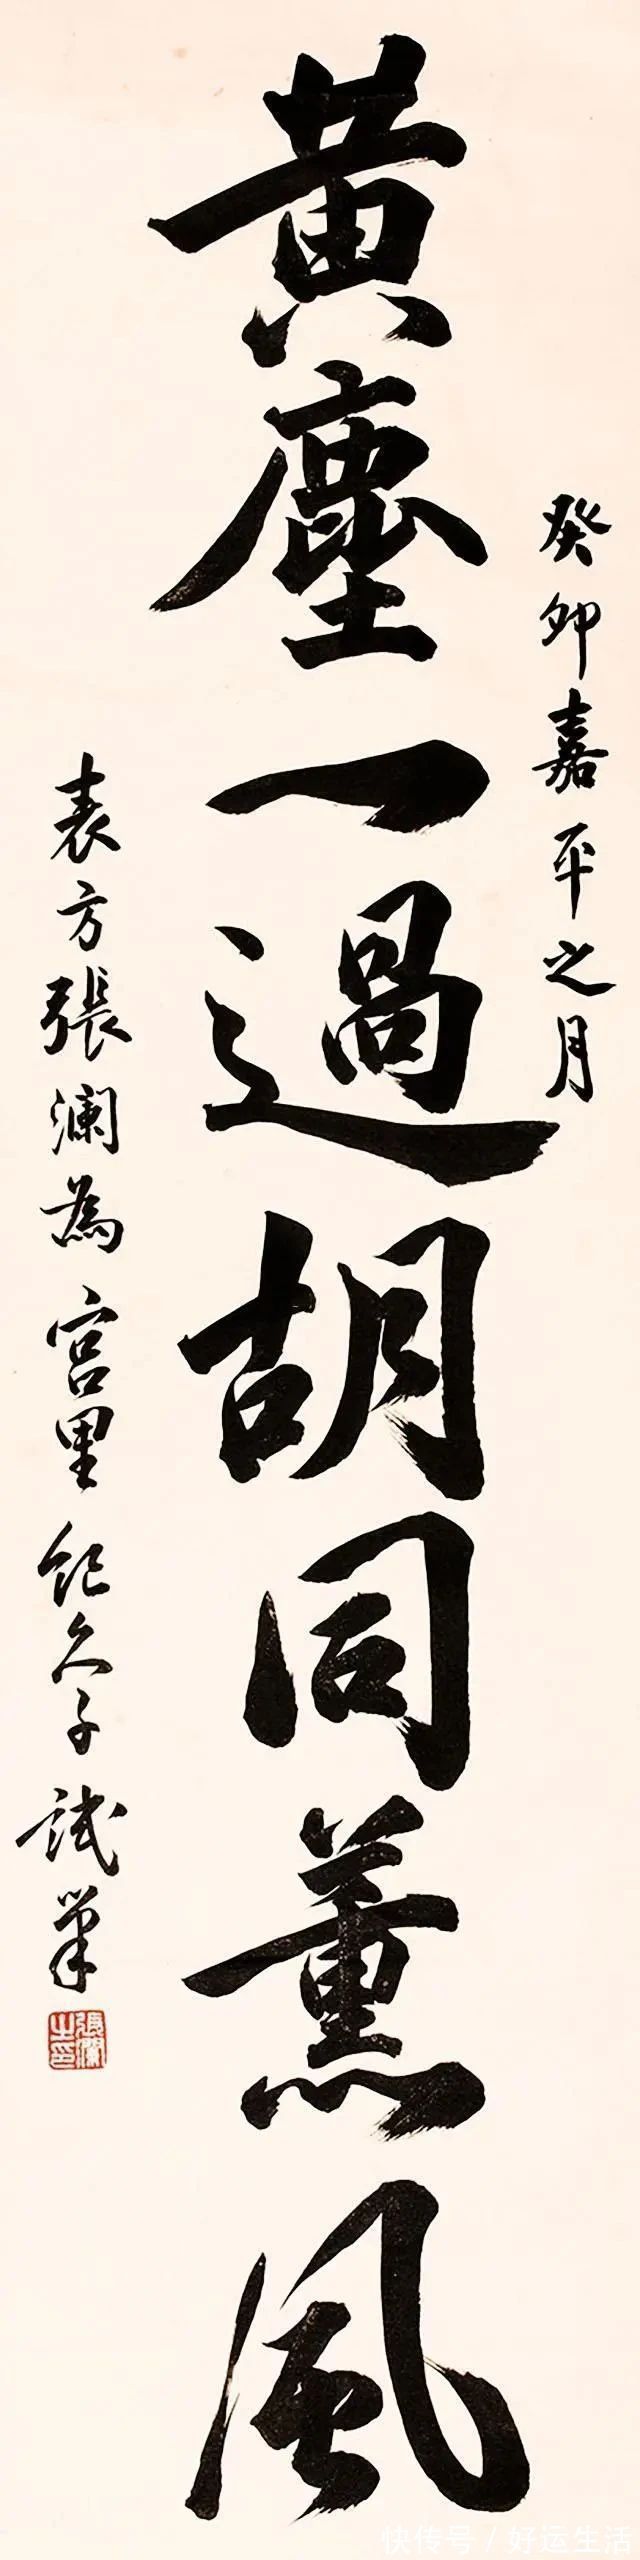 癸卯嘉平之月
黄塵一過胡同薰風
表方張瀾為宫里紀久子試筆
張瀾之印
快传号/好运生活